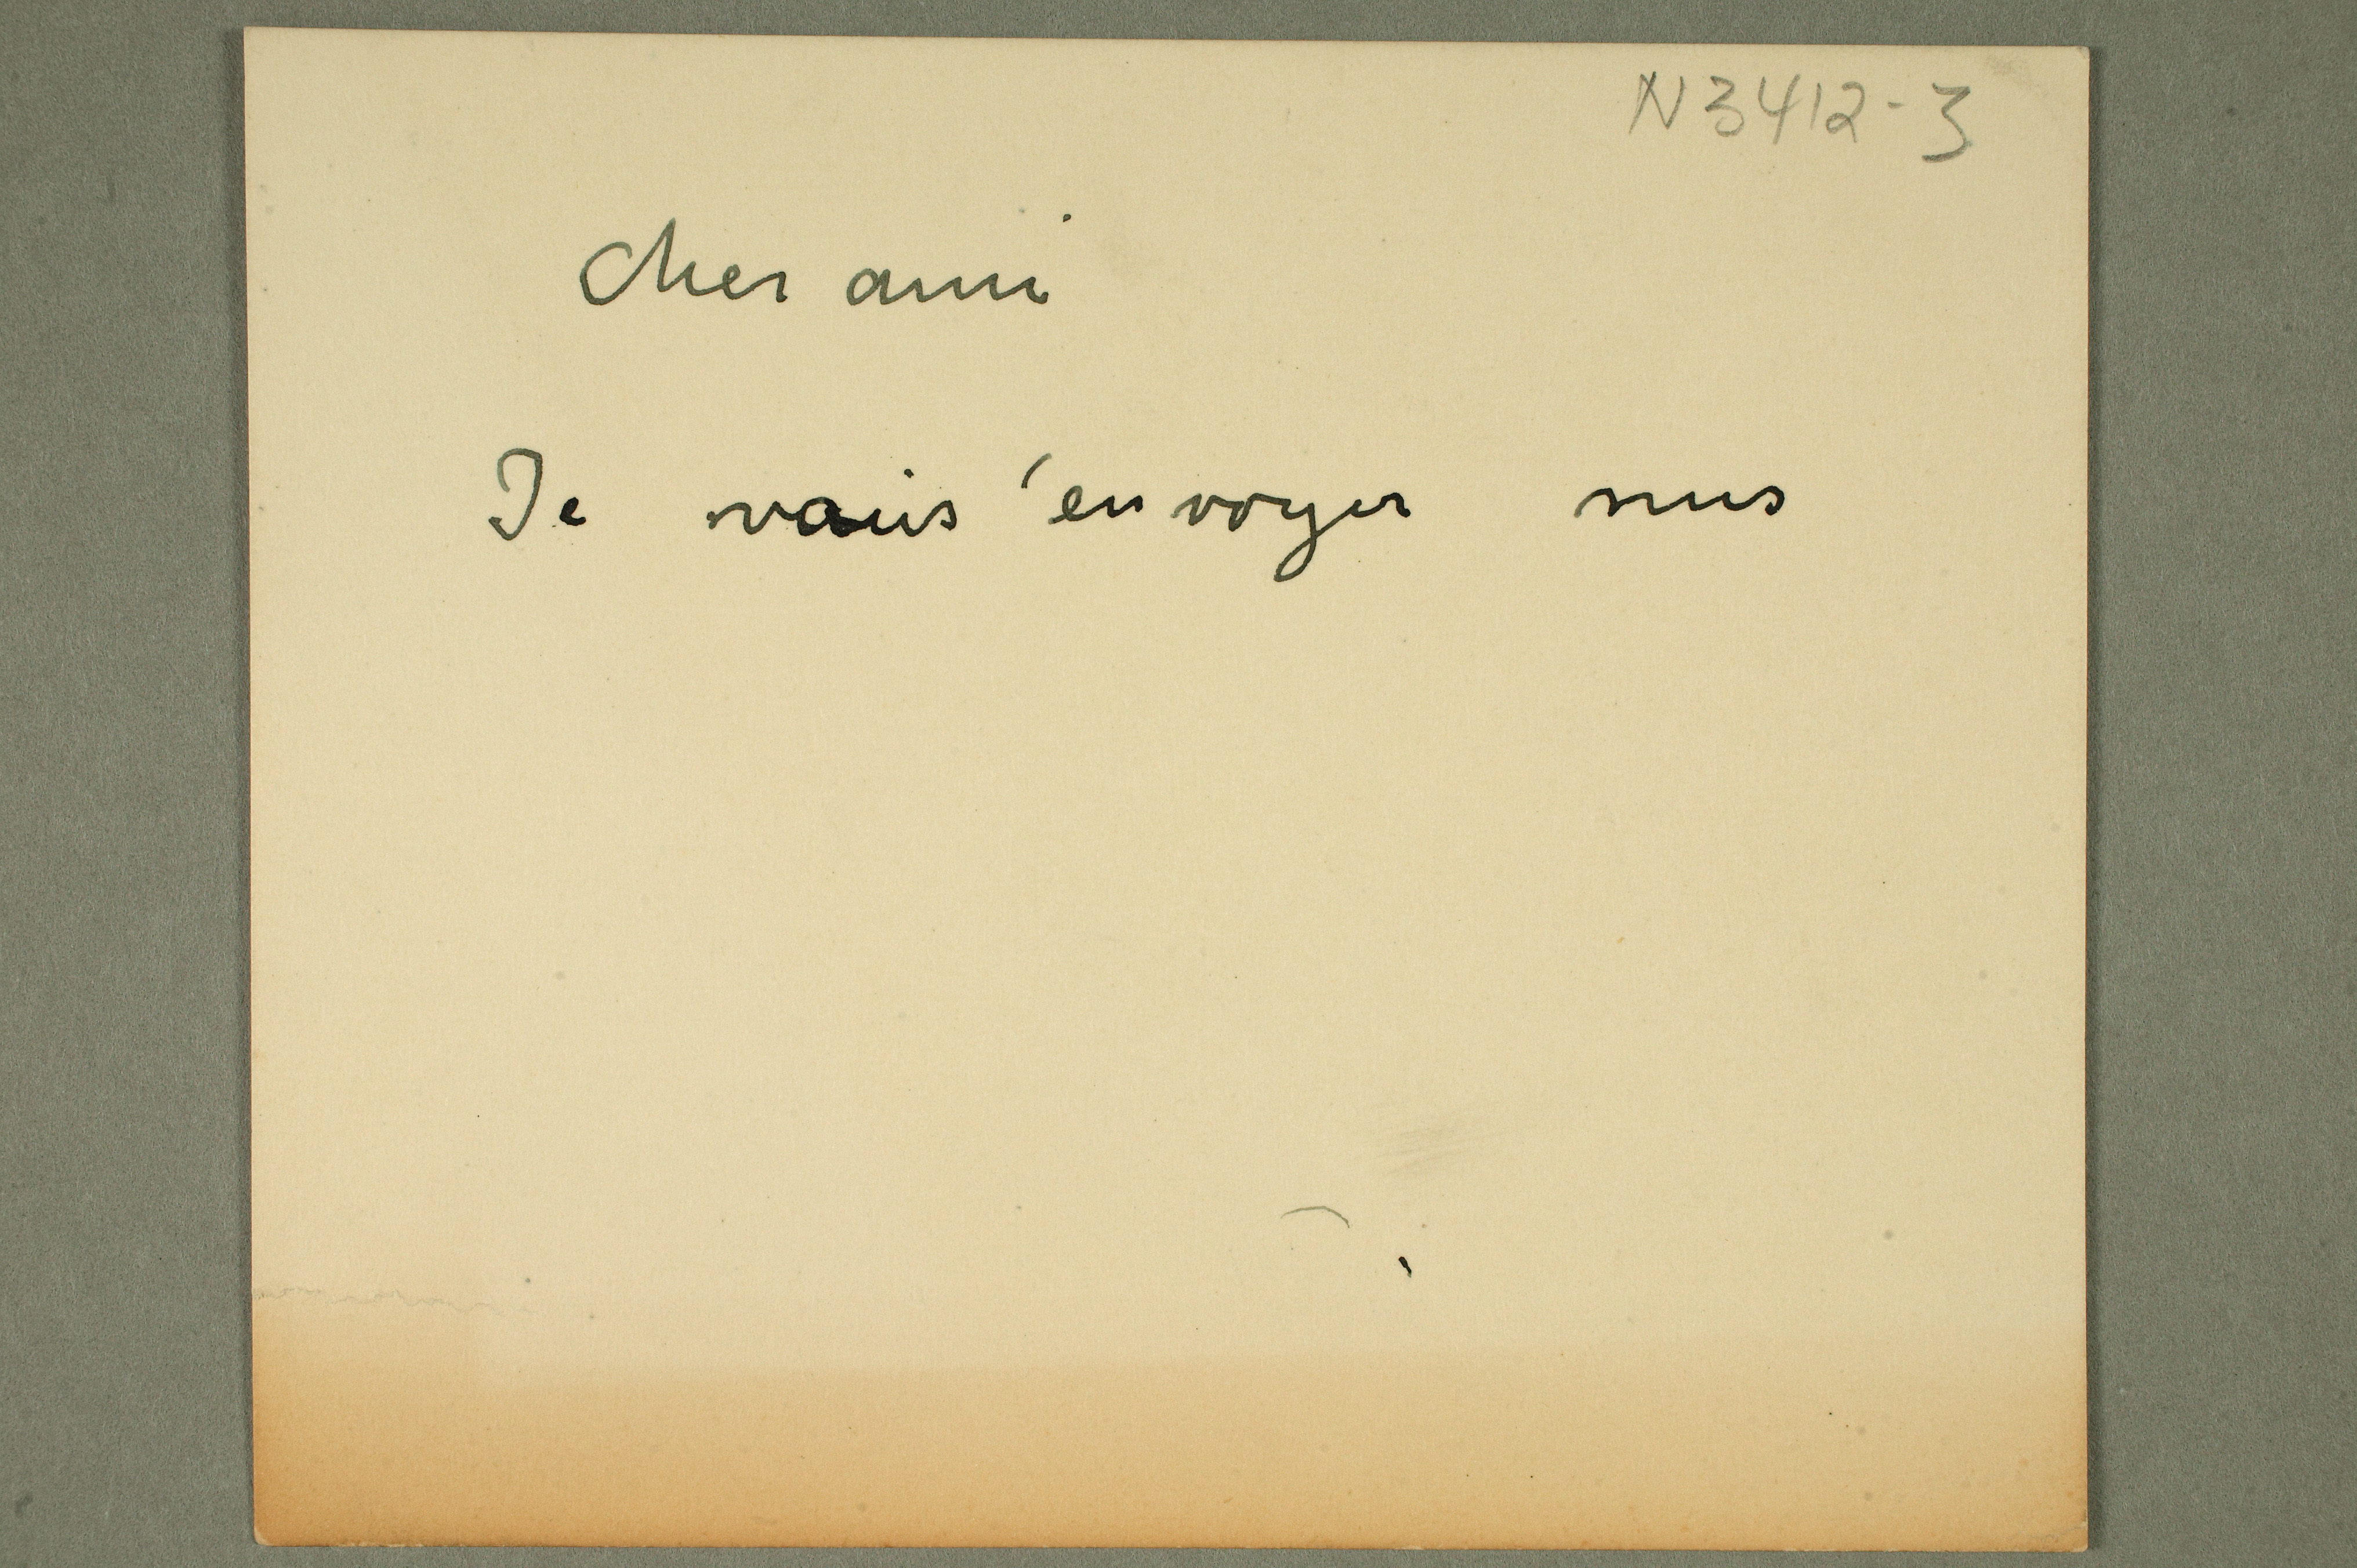 N 3412-3
Cher ami
Je vais 'envoyer mus